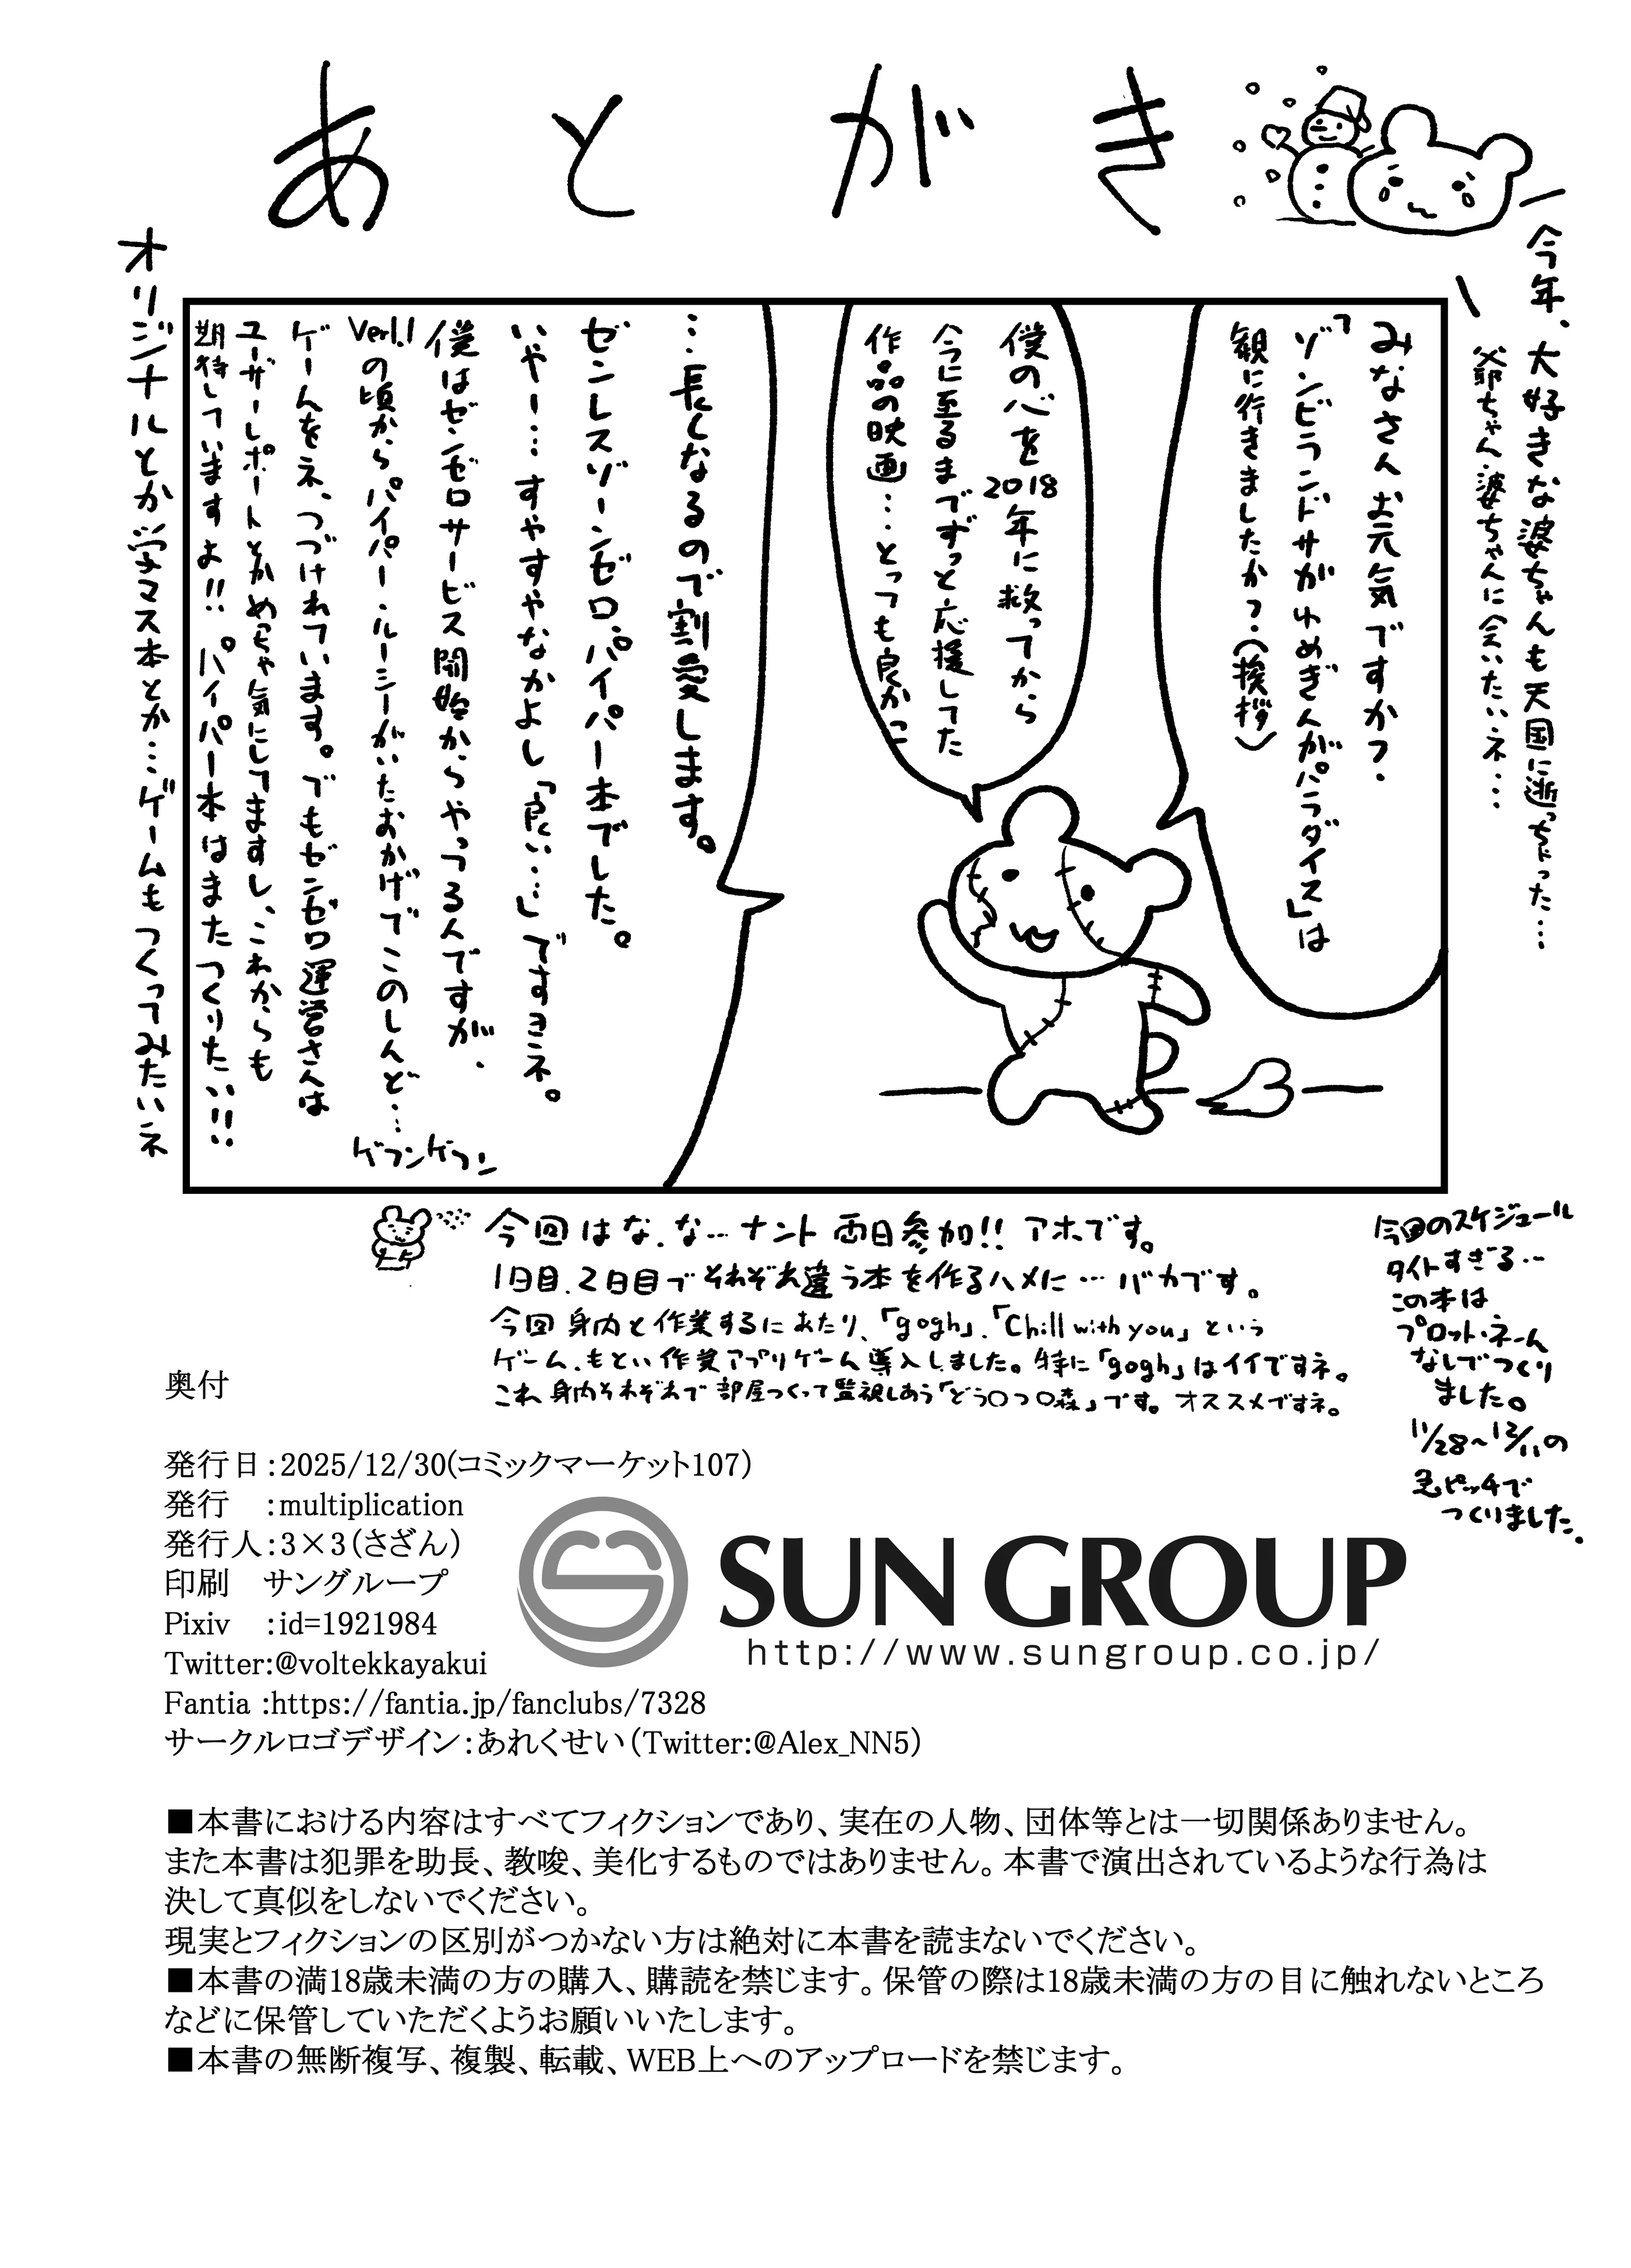 あとがき
今年、大好きな婆ちゃんも天国に逝っちゃった…
爺ちゃん・婆ちゃんに会いたいネ…
みなさんお元気ですか?
「ゾンビランドサガゆめぎんがパラダイス」は
観に行きましたか?(挨拶)
僕の心を2018年に救ってから
今に至るまでずっと応援してた
作品の映画…とっても良かっ
…長くなるので割愛します。
ゼンレスゾーンゼロ、パイパー本でした。
いやー…すやすやなかよし「良い…」ですネ。
僕はゼンゼロサービス開始からやってる人ですが、
Ver1.1の頃からパイパー・ルーシーがいたおかげでこのしんど…
ゲフンゲフン
ゲームをネ、つづけれています。でもゼンゼロ運営さんは
ユーザーレポートとかめっちゃ気にしてますし、これからも
期待していますよ!!パイパー本はまたつくりたい!!
オリジナルとか学マス本とか…ゲームもつくってみたいネ
今回はな、な…ナント両日参加!!アホです。
1日目、2日目でそれぞれ違う本を作るハメに…バカです。
今回身内と作業するにあたり、「gogh」、「Chill with you」という
ゲーム、もとい作業アプリゲーム導入しました。特に「gogh」はイイですネ。
これ身内それぞれで部屋つくって監視しあう「どう〇つ〇森」です。オススメですネ。
今回のスケジュール
タイトすぎる…
この本は
プロット・ネーム
なしでつくり
ました。
11/28~12/11の
急ピッチで
つくりました。
奥付
発行日:2025/12/30(コミックマーケット107)
発行 :multiplication
発行人:3×3(さざん)
印刷 サングループ
Pixiv :id=1921984
Twitter:@voltekkayakui
Fantia :https://fantia.jp/fanclubs/7328
サークルロゴデザイン:あれくせい(Twitter:@Alex_NN5)
SUN GROUP
http://www.sungroup.co.jp/
■本書における内容はすべてフィクションであり、実在の人物、団体等とは一切関係ありません。
また本書は犯罪を助長、教唆、美化するものではありません。本書で演出されているような行為は
決して真似をしないでください。
現実とフィクションの区別がつかない方は絶対に本書を読まないでください。
■本書の満18歳未満の方の購入、購読を禁じます。保管の際は18歳未満の方の目に触れないところ
などに保管していただくようお願いいたします。
■本書の無断複写、複製、転載、WEB上へのアップロードを禁じます。